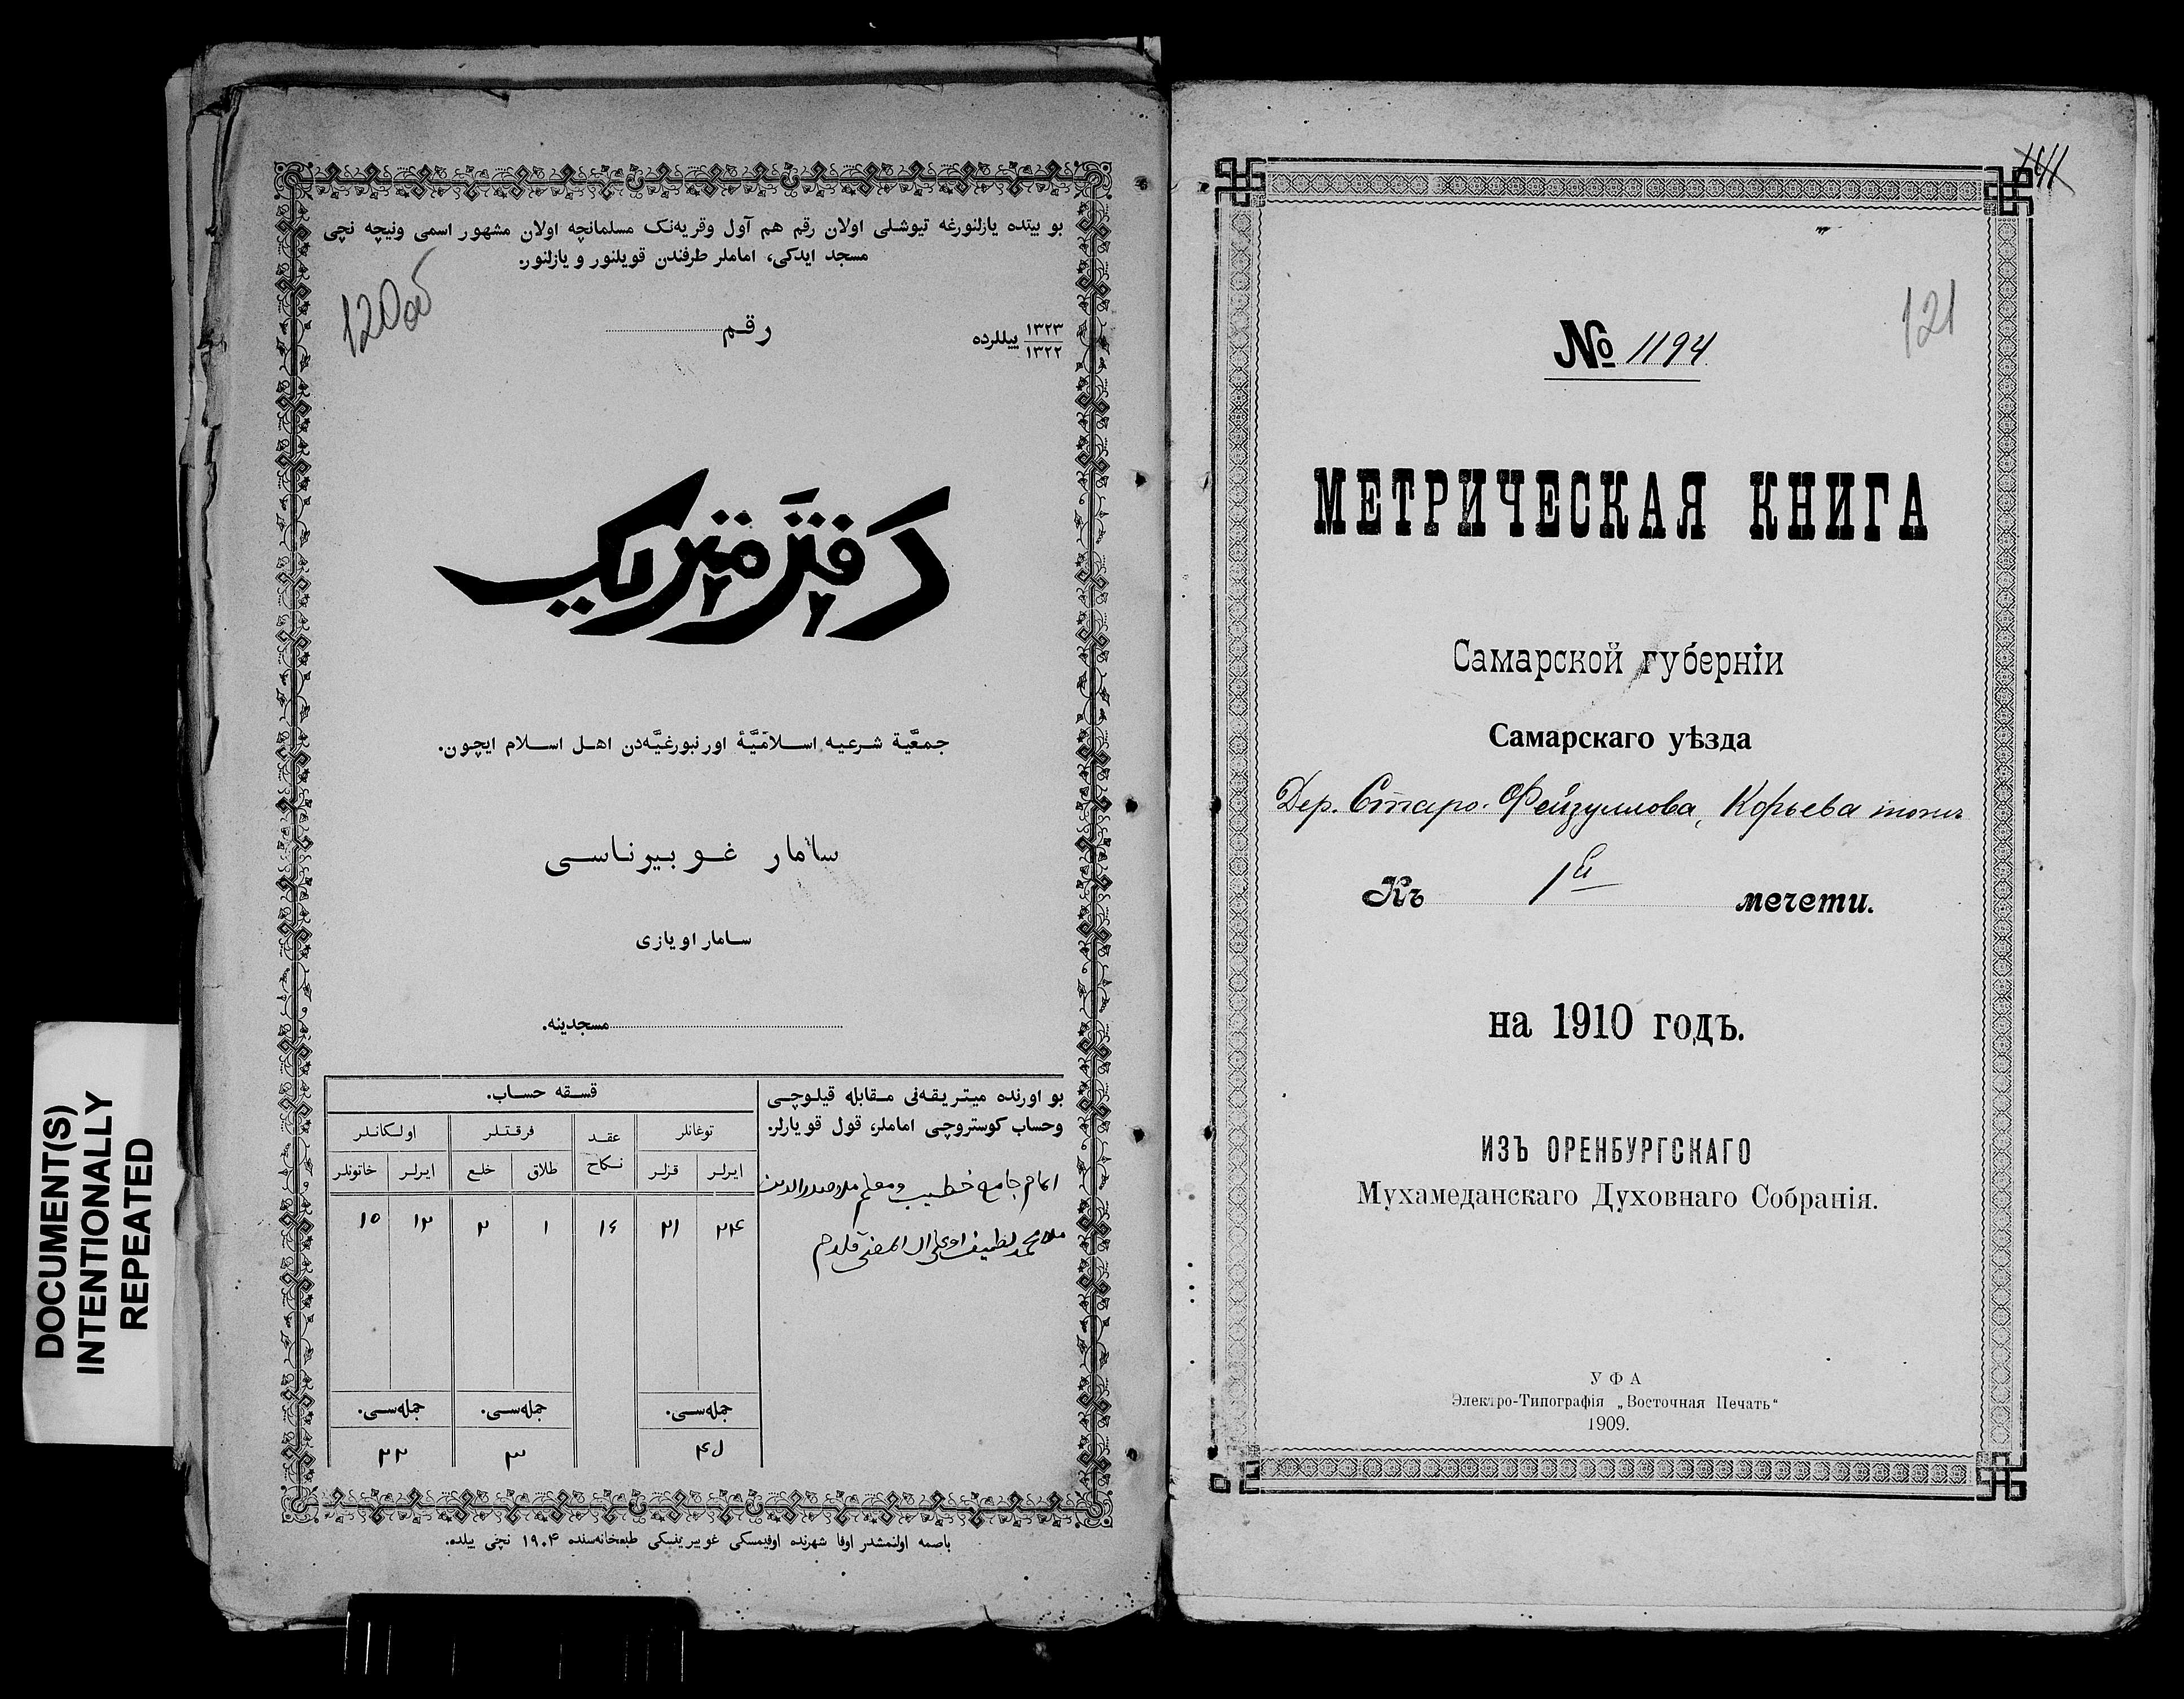 DOCUMENT(S)
INTENTIONALLY
REPEATED
بو بیتده یازلنورغه تیوشلی اولان رقم هم آول وقریه‌نک مسلمانچه اولان مشهور اسمی ونیچه نچی
مسجد ایدکی، اماملر طرفندن قویلنور و یازلنور.
120об
١٣٢٣
١٣٢٢
ییللرده
رقم
دفتر متریك
جمعیّة شرعیه اسلامیّۀ اورنبورغیّه‌دن اهل اسلام ایچون.
سامار غوبیرناسی
سامار اویازی
مسجدینه.
بو اورنده میتریقه‌نی مقابله قیلوچی
وحساب کوستروچی اماملر، قول قویارلر.
امام جامع خطیب ومعلم ملا صدرالدین
قسقه حساب.
توغانلر عقد نکاح فرقتلر اولکانلر
ایرلر قزلر طلاق خلع ایرلر خاتونلر
٢٤ ٢١ ١٦ ١ ٢ ١٢ ١٥
جمله‌سی. جمله‌سی. جمله‌سی.
٣
باصمه اولنمشدر اوفا شهرنده اوفیمسکی غوبیرینسکی طبعخانه‌سنده ١٩٠۴ نچی ییلده.
121
№ 1194
МЕТРИЧЕСКАЯ КНИГА
Самарской губерніи
Самарскаго уѣзда
Дер. Старо-Фейзуллова, Корьева тожъ
Къ 1й мечети.
на 1910 годъ.
ИЗЪ ОРЕНБУРГСКАГО
Мухамеданскаго Духовнаго Собранія.
УФА
Электро-Типографія „Восточная Печать“
1909.